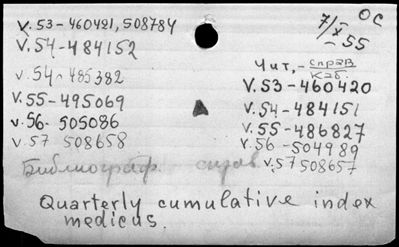 OC
7/X-55
V.53-460421, 508784
V.54-484152
V.54-485382
V.55-495069
V.56-505086
V.57 508658
Чит.-справ каб.
V.53-460420
V.54-484151
V.55-486827
V.56-504989
V.57 508657
Библиограф. справ.
Quarterly cumulative index
medicus.